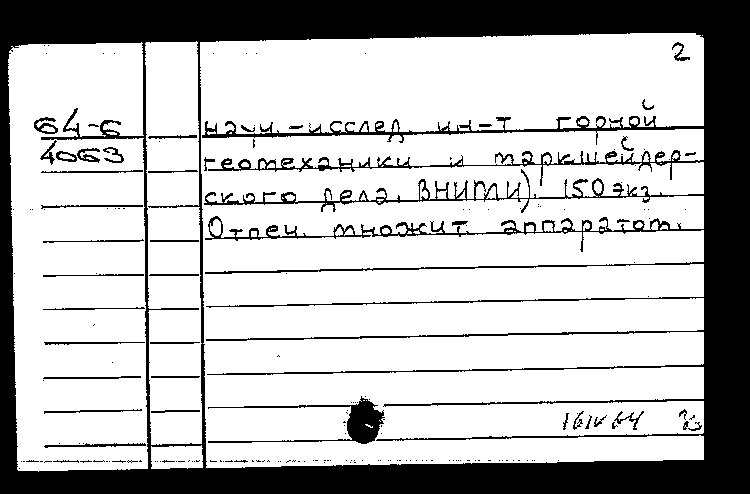 2
64-6
4063
научн.-исслед. ин-т горной
геотеханики и маркшейдер-
ского дела. ВНИМИ). 150 экз.
Отпеч. множит. аппаратом.
16 IV 64